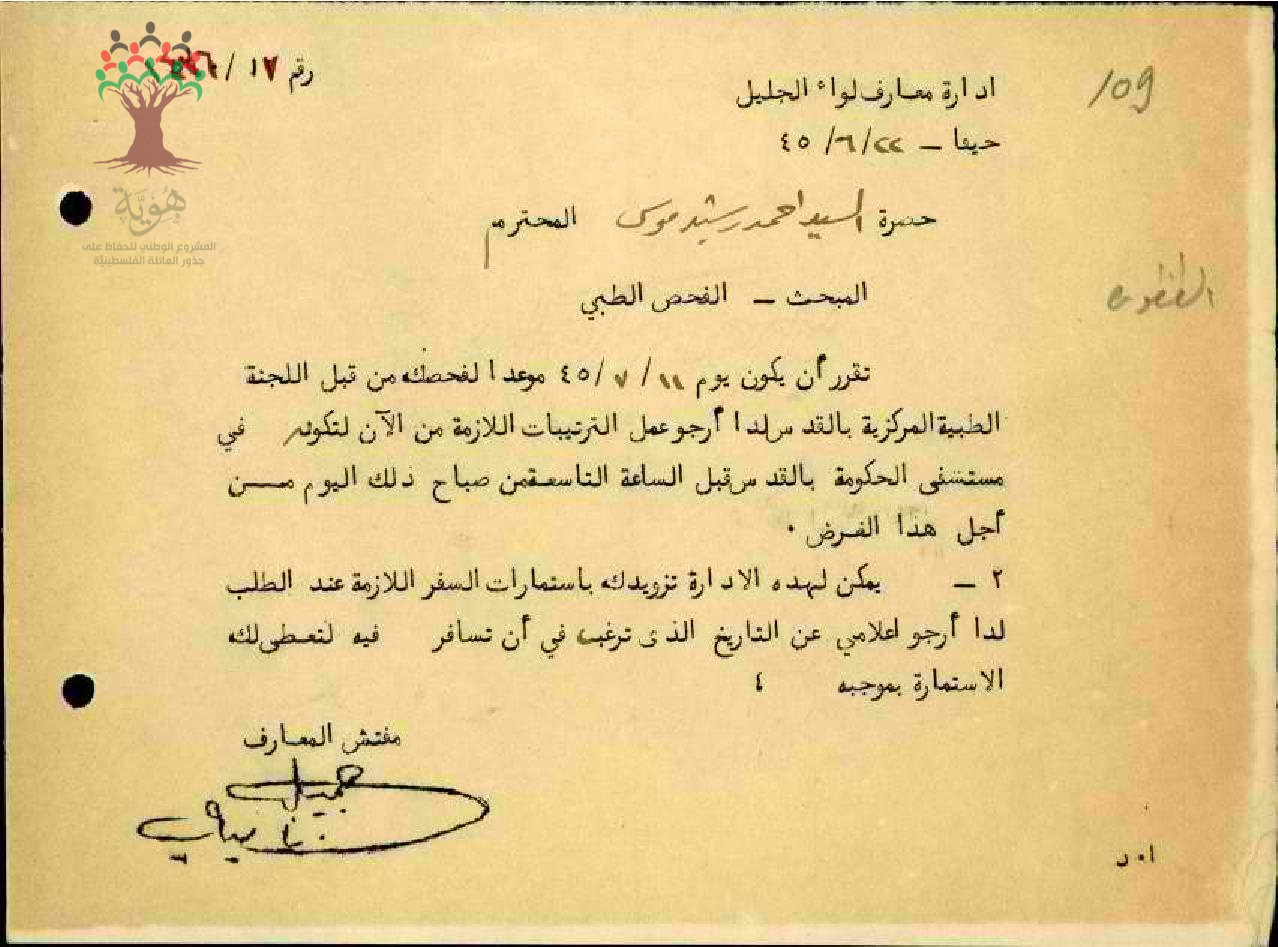 رقم ١٧/
ادارة معارف لواء الجليل
109/
حيفا – ٤٥/٦/٢٢
حضرة السيد احمد رشيد موسى المحترم
هُوِيَّة
المشروع الوطني للحفاظ على
جذور العائلة الفلسطينيّة
المبحث – الفحص الطبي
تقرر أن يكون يوم ٤٥/٧/١١ موعدا لفحصك من قبل اللجنة
الطبية المركزية بالقدس لذا أرجو عمل الترتيبات اللازمة من الآن لتكون في
مستشفى الحكومة بالقدس قبل الساعة التاسعة من صباح ذلك اليوم مــن
أجل هذا الغرض ٠
٢ – يمكن لهذه الادارة تزويدك باستمارات السفر اللازمة عند الطلب
لذا أرجو اعلامي عن التاريخ الذى ترغب في أن تسافر فيه لتعطى لك
الاستمارة بموجبه ٤
مفتش المعارف
جميل
ا٠د